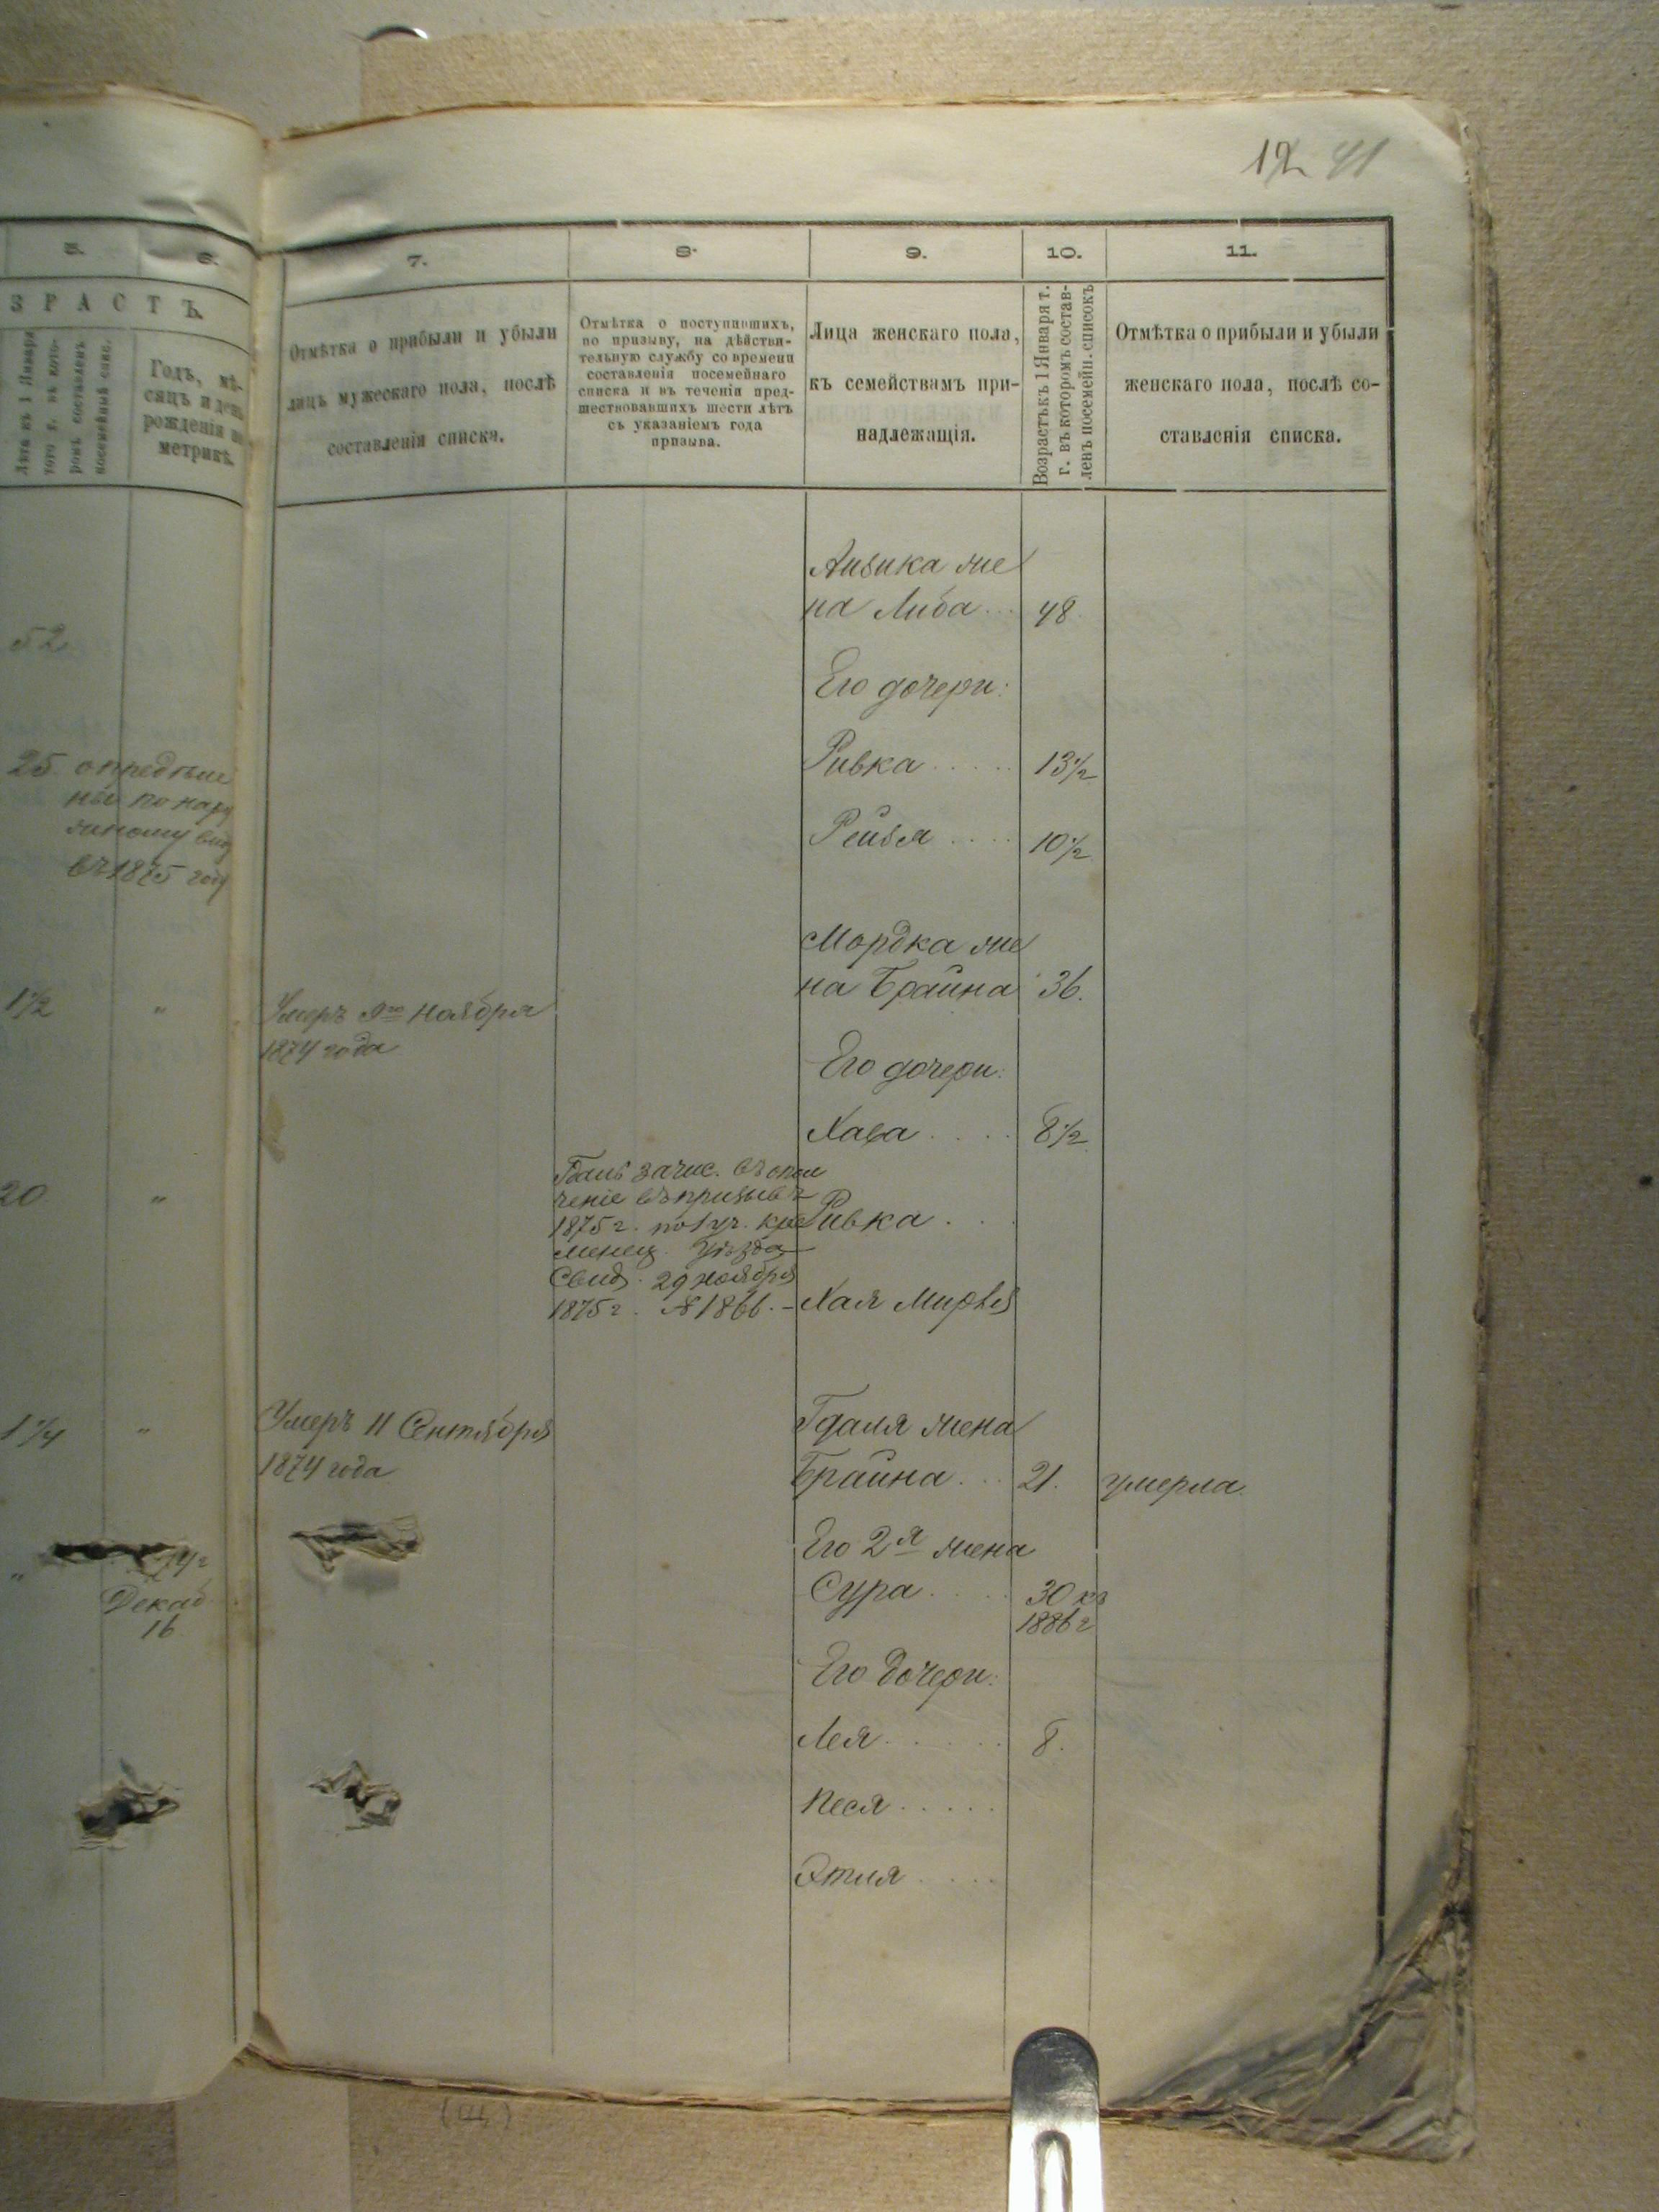 12 41
5. 6. 7. 8. 9. 10. 11.
ЗРАСТЪ.
Лѣта къ 1 Января
того г. въ кото-
ромъ составленъ
посемейный спис.
Годъ, мѣ-
сяцъ и день
рожденія по
метрикѣ.
Отмѣтка о прибыли и убыли
лицъ мужескаго пола, послѣ
составленія списка.
Отмѣтка о поступившихъ,
по призыву, на дѣйстви-
тельную службу со времени
составленія посемейнаго
списка и въ теченіи пред-
шествовавшихъ шести лѣтъ
съ указаніемъ года
призыва.
Лица женскаго пола,
къ семействамъ при-
надлежащія.
Возрастъ къ 1 Января т.
г. въ которомъ состав-
ленъ посемейн. списокъ
Отмѣтка о прибыли и убыли
женскаго пола, послѣ со-
ставленія списка.
Аизика же
на Либа... 48
52
Его дочери:
25. опредѣле
ны по нару
жному виду
въ 1875 году
Ривка..... 13½
Рейзя.... 10½
Мордка же
на Брайна 36.
1½ "
Умеръ 9го Ноября
1874 года
Его дочери:
Хава.... 8½
20 "
зачис. въ опол
ченіе въ призывъ
1875 г. по 1 уч. кре
менец. уѣзда
Свид. 29 ноября
1875 г. № 1866.-
Ривка...
Хая Мирля
1¼ "
Умеръ 11 Сентября
1874 года
Гдаля жена
Брайна... 21. умерла.
Его 2я жена
Сура.... 30 къ
1886 г
" 
Декаб
16
Его дочери:
Лея...... 8.
Песя.....
Этля....